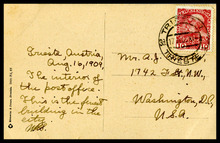 Trieste, Austria,
Aug. 16, 1909.
The interior of
the postoffice.
This is the finest
building in the
city.
Mr. A. J.
1742 F St., N.W.,
Washington, D.C.
U.S.A.